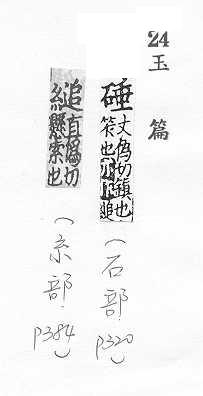 24 玉篇
硾 丈偽切鎮也
笮也亦作追
(石部 P320)
縋 直偽切
縋懸索也
(糸部 P384)